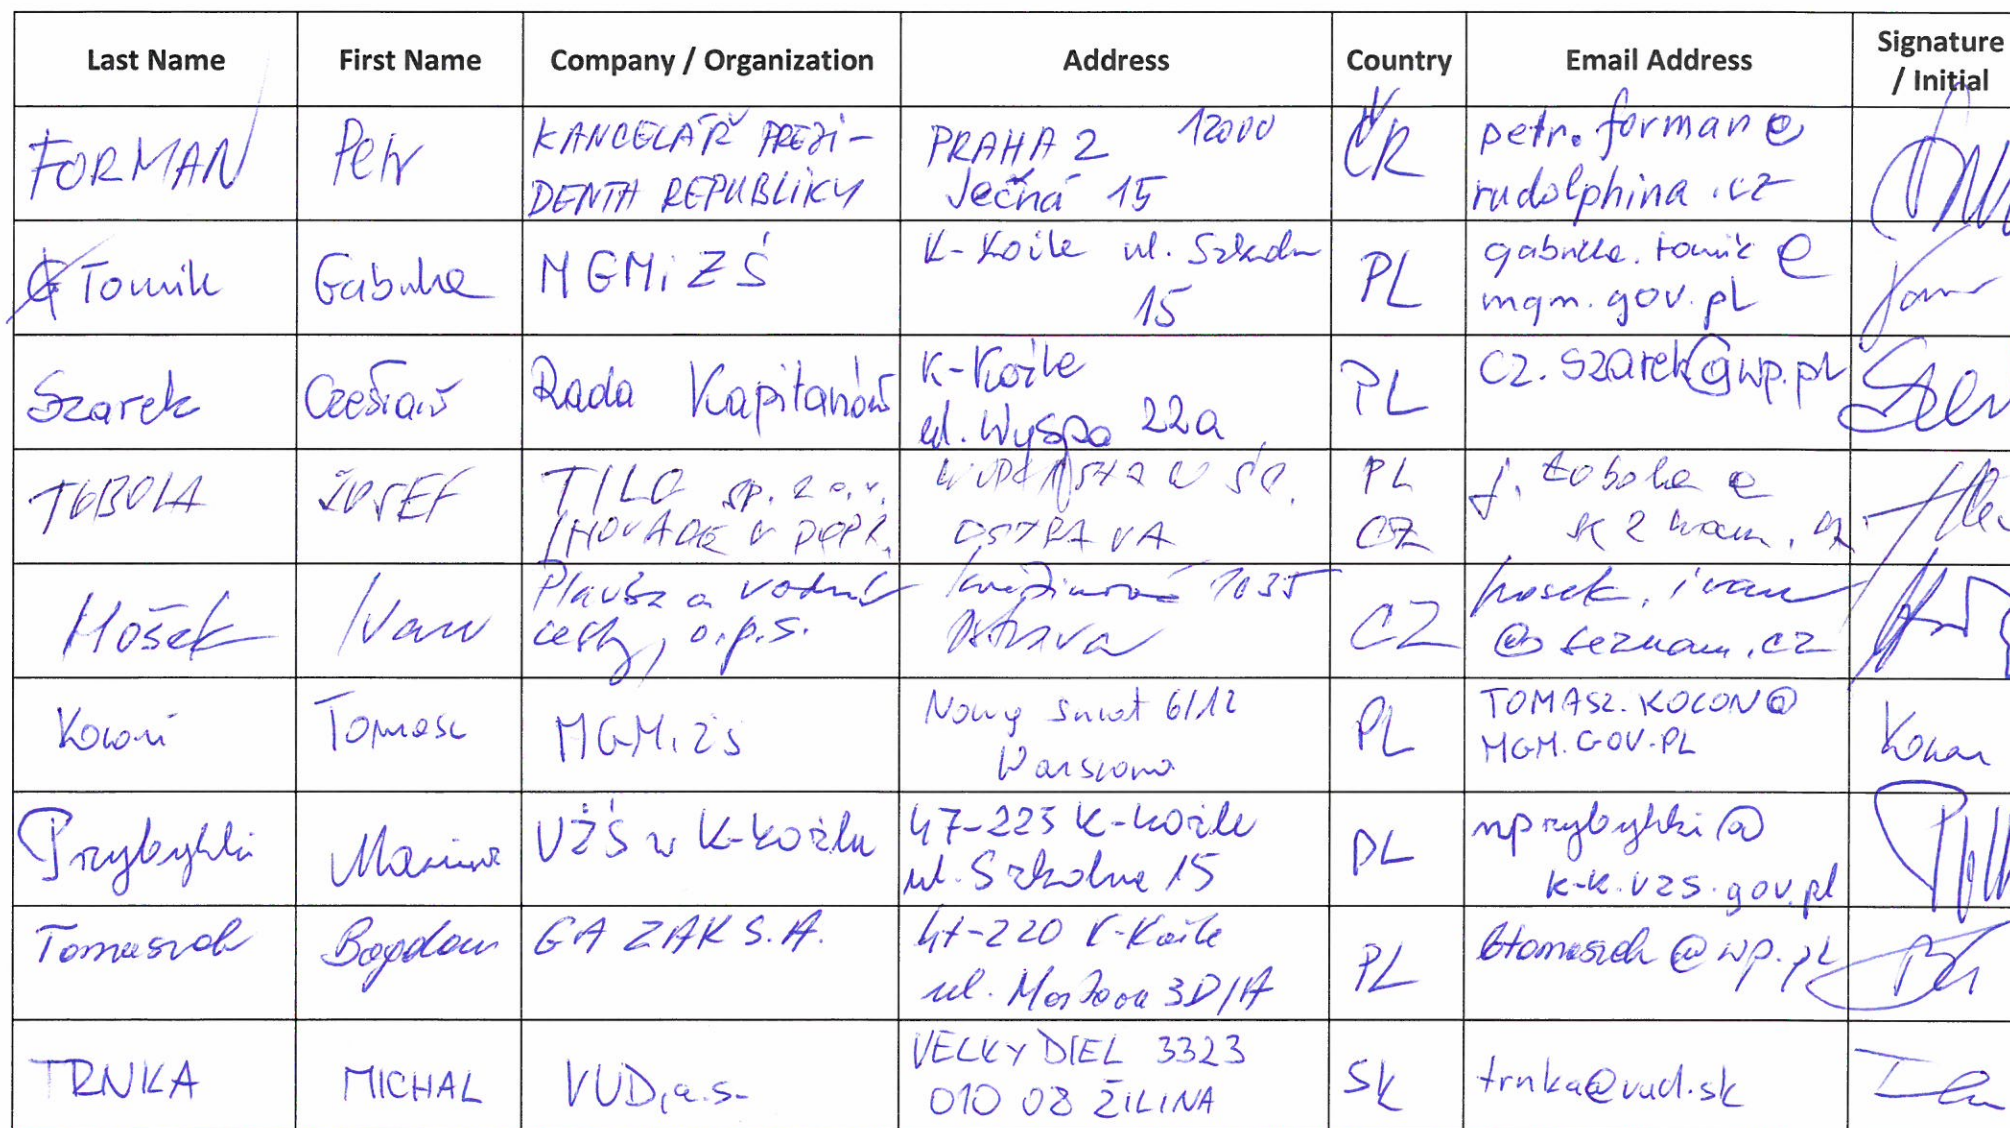 Last Name First Name Company / Organization Address Country Email Address Signature / Initial
FORMAN Petr KANCELÁŘ PREZI-
DENTA REPUBLIKY PRAHA 2 12000
Ječná 15 ČR petr.forman@
rudolphina.cz
Tomik MGMiZŚ K-Koźle ul. Szkolna
15 PL
mgm.gov.pl
Szarek Czesław Rada Kapitanów K-Koźle
ul. Wyspa 22a PL cz.szarek@wp.pl
TOBOLA JOSEF TILO sp. z o.o.
INOVACE V DOPR.
OSTRAVA PL
CZ
Hošek Ivan Plavba a vodní
cesty, o.p.s. 1035
Ostrava CZ hosek.ivan
@seznam.cz
Kocoń Tomasz MGMiZŚ Nowy Świat 6/12
Warszawa PL TOMASZ.KOCON@
MGM.GOV.PL
Przybylski UŻŚ w K-Koźlu 47-223 K-Koźle
ul. Szkolna 15 PL
k-k.uzs.gov.pl
Tomaszek Bogdan GA ZAK S.A. 47-220 K-Koźle
ul. Mostowa 3D/1A PL btomaszek@wp.pl
TRNKA MICHAL VUD, a.s. VELKY DIEL 3323
010 08 ŽILINA SK trnka@vud.sk